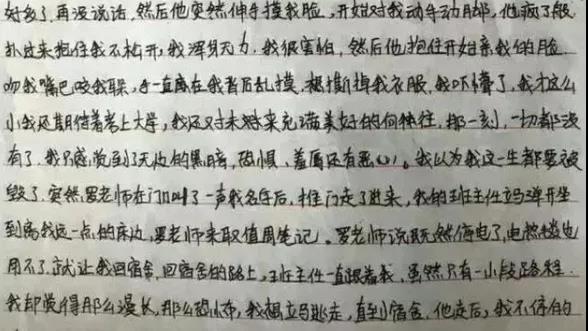 好多了，再没说话，然后他突然伸手摸我脸，开始对我动手动脚，他疯了般
扑过来抱住我不松开，我浑身无力，我很害怕，然后他抱住开始亲我的脸
吻我嘴巴咬我耳朵，手一直在我背后乱摸，想撕掉我衣服，我吓懵了，我才这么
小我还期待着考上大学，我还对未来充满美好的向往，那一刻，一切都没
有了，我只感觉到了无边的黑暗，恐惧，羞辱还有恶心。我以为我这一生都要被
毁了，突然罗老师在门口叫了一声我名字后，推门走了进来，我的班主任立马弹开坐
到离我远一点的床边，罗老师来取值周笔记。罗老师说既然停电了，电热毯也
用不了，就让我回宿舍，回宿舍的路上，班主任一直跟着我，虽然只有一小段路程
我却觉得那么漫长，那么恐怖，我想立马逃走，直到宿舍，他走后，我不停的